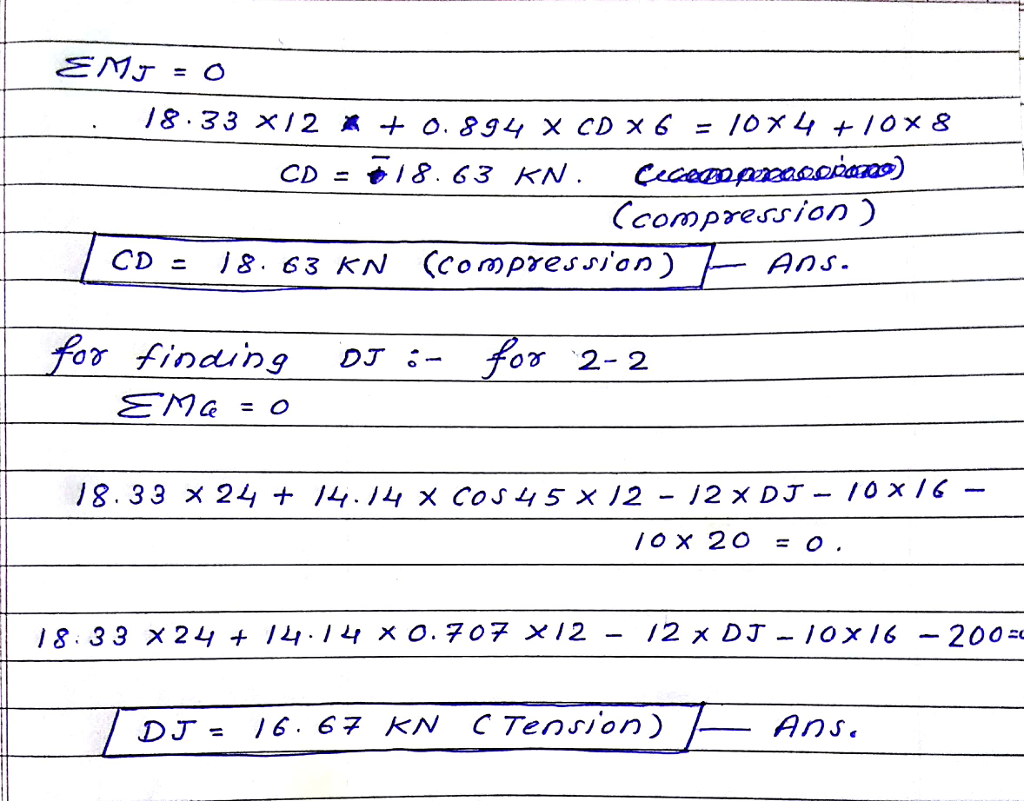 ΣMJ = 0
18.33 × 12 + 0.894 × CD × 6 = 10 × 4 + 10 × 8
CD = -18.63 KN.
(compression)
CD = 18.63 KN (compression) — Ans.
for finding DJ :- for 2-2
ΣMG = 0
18.33 × 24 + 14.14 × COS45 × 12 - 12 × DJ - 10 × 16 -
10 × 20 = 0.
18.33 × 24 + 14.14 × 0.707 × 12 - 12 × DJ - 10 × 16 - 200=0
DJ = 16.67 KN (Tension) — Ans.